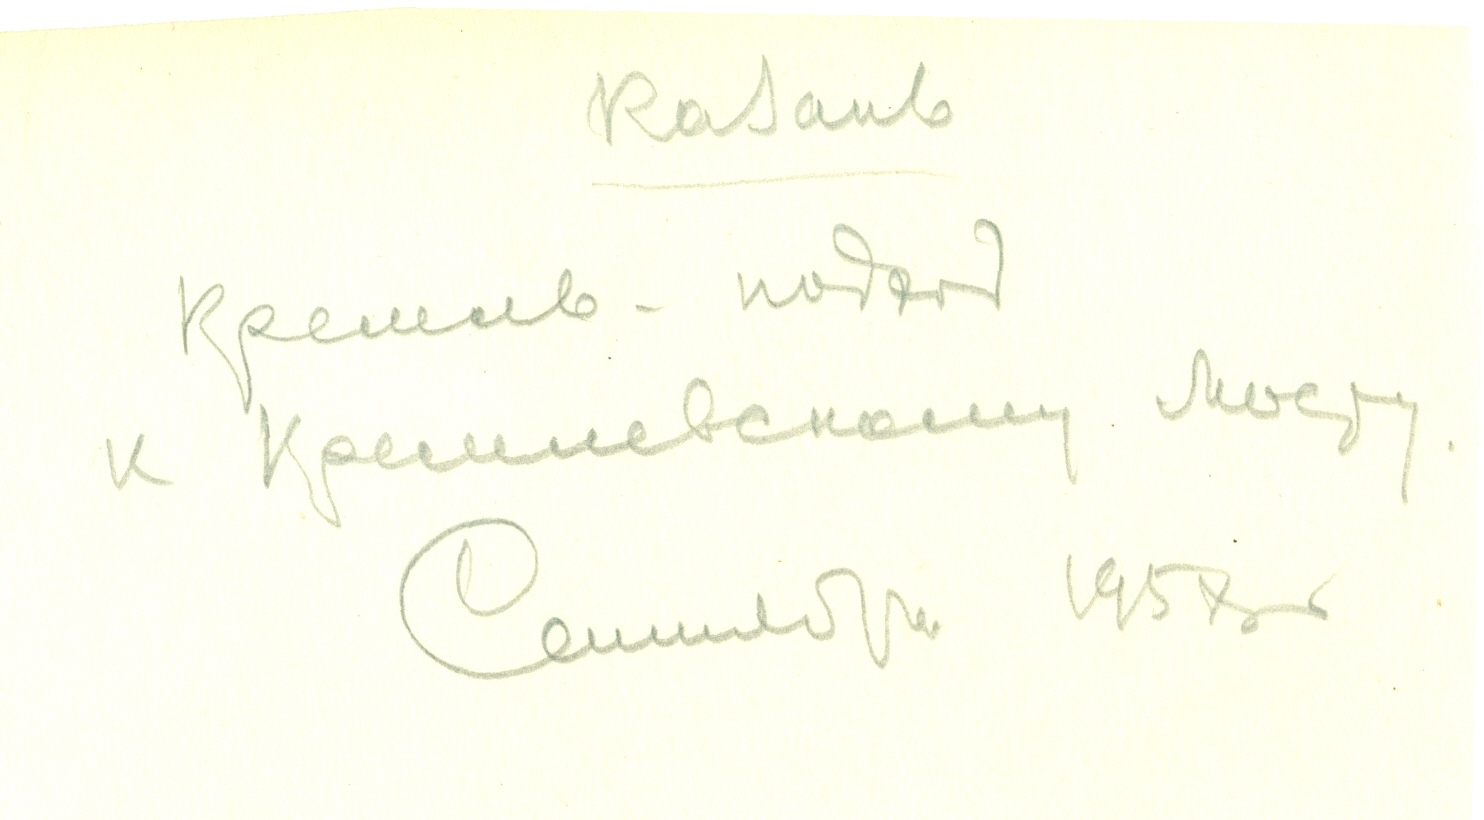 Казань
Кремль - подход
к Кремлевскому мосту.
Сентябрь 1957 г